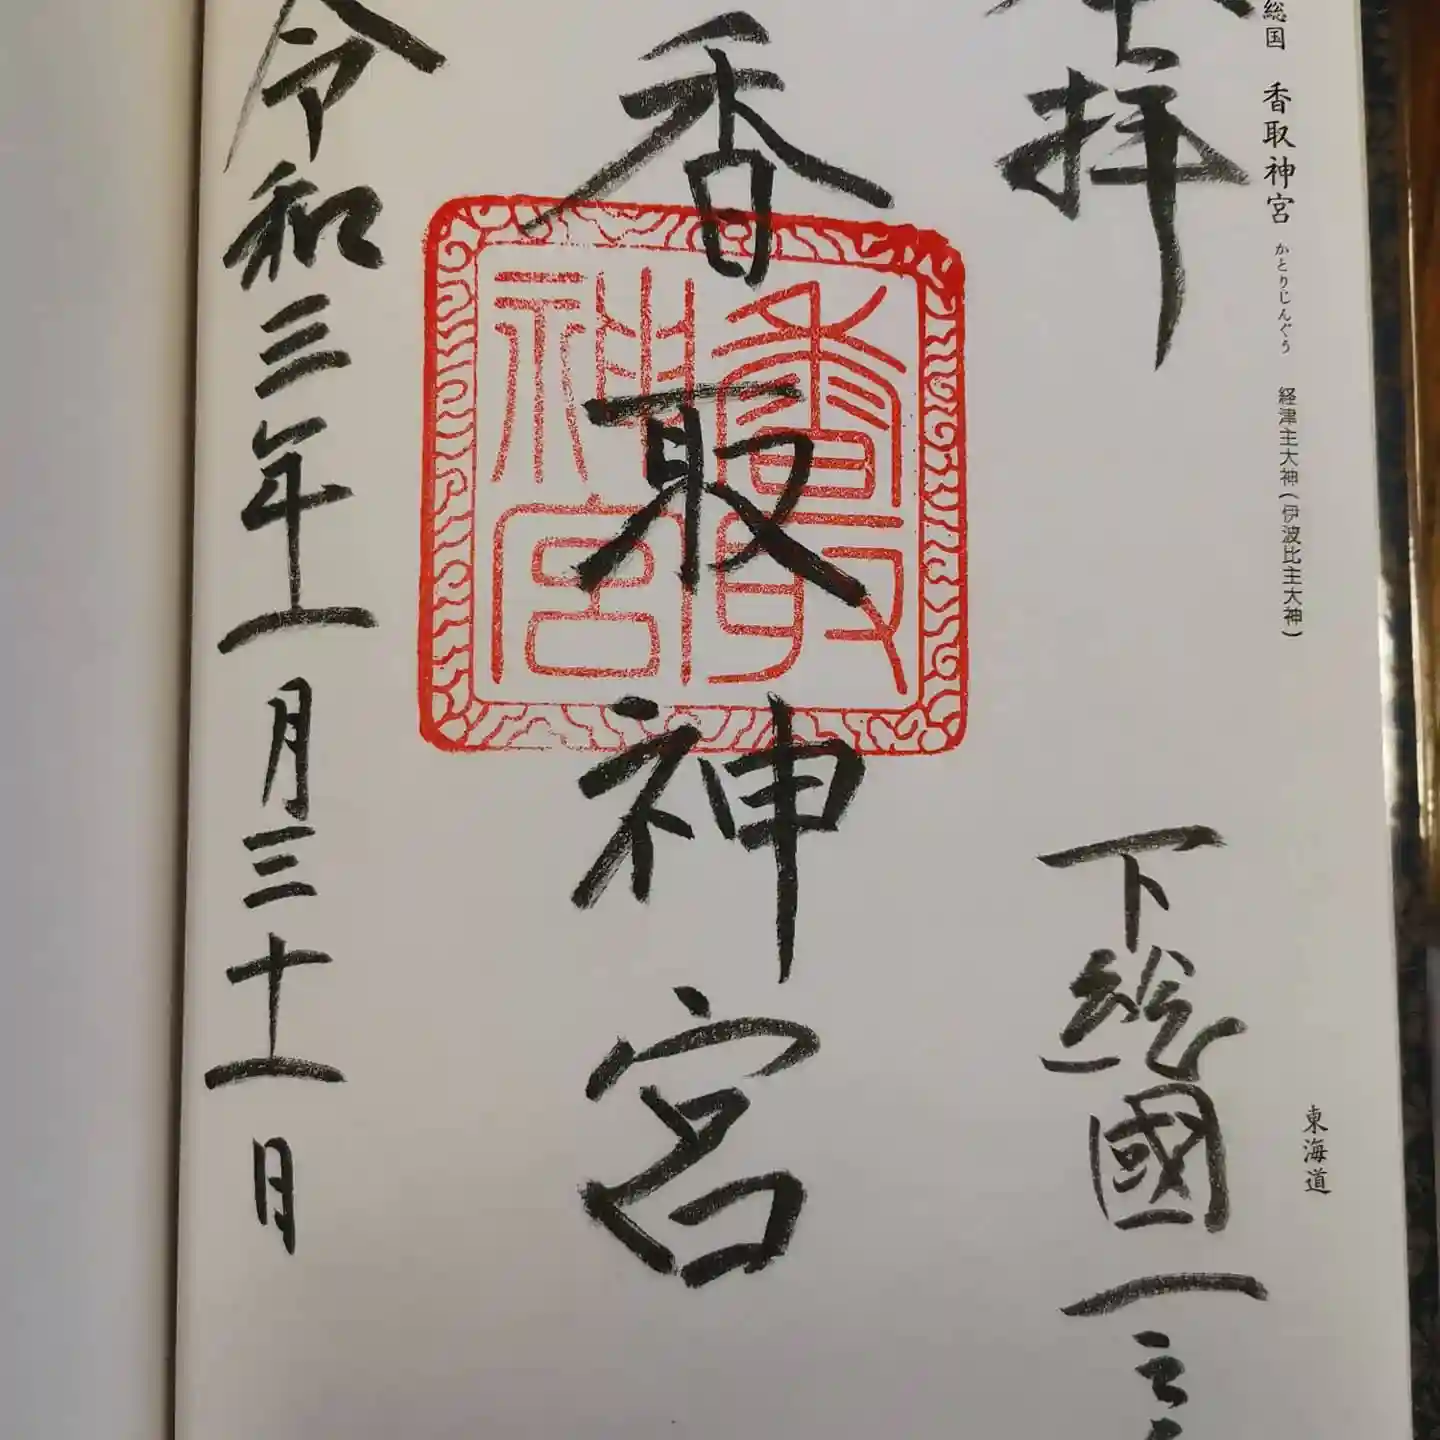 総国 香取神宮 かとりじんぐう 経津主大神(伊波比主大神)
東海道
拝
下総國一
香取神宮
香取神宮
令和三年一月三十一日